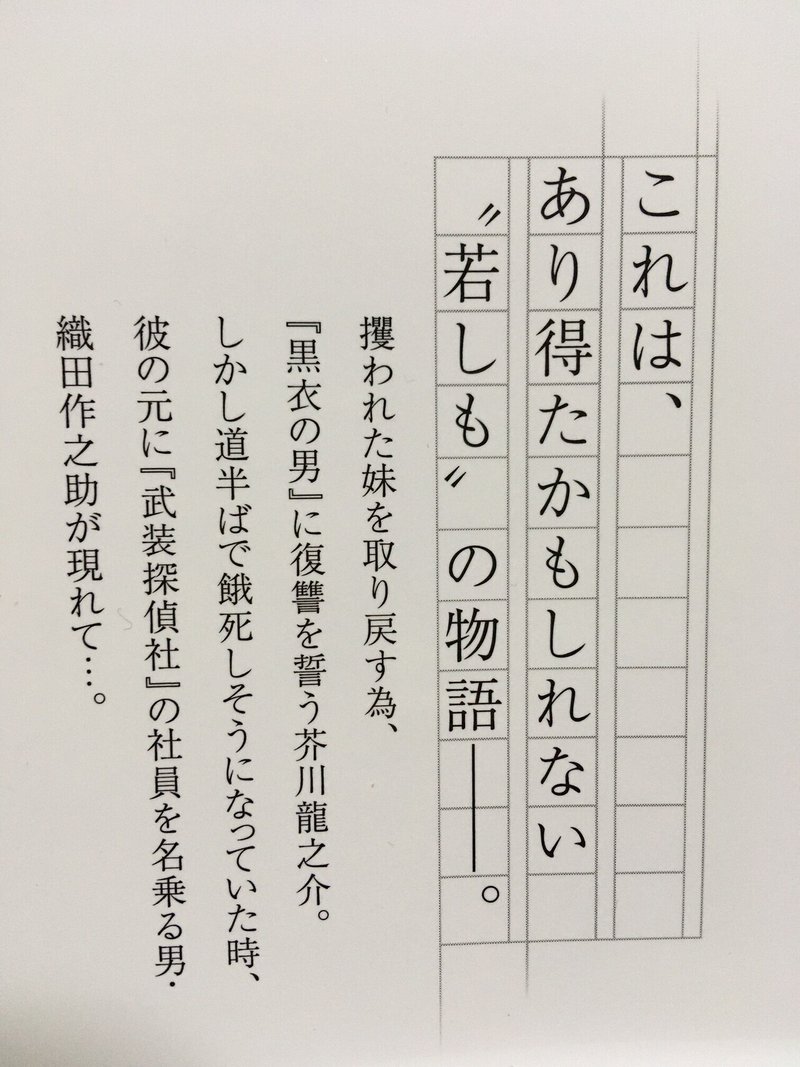 これは、
あり得たかもしれない
〝若しも〟の物語――。
攫われた妹を取り戻す為、
『黒衣の男』に復讐を誓う芥川龍之介。
しかし道半ばで餓死しそうになっていた時、
彼の元に『武装探偵社』の社員を名乗る男・
織田作之助が現れて…。